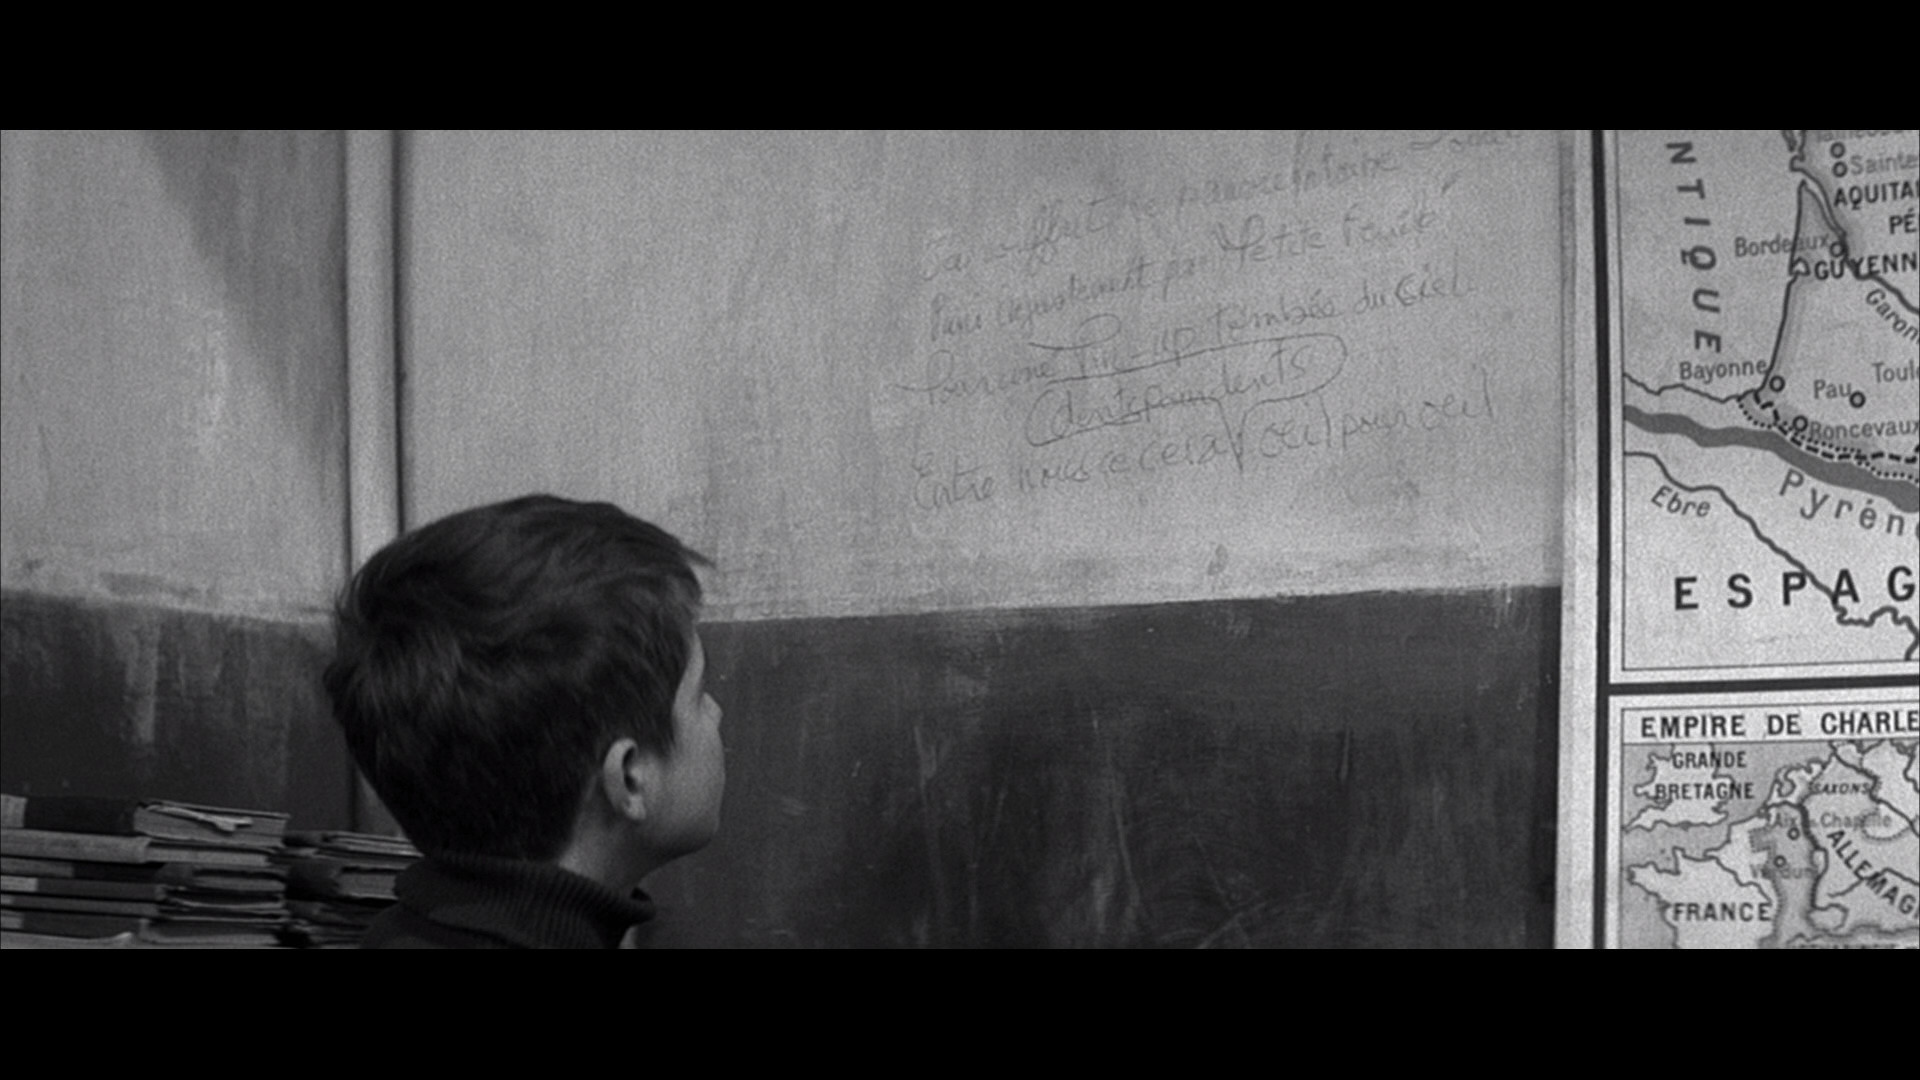 Ici souffrit le pauvre Antoine Doinel
Puni injustement par Petite Feuille
Pour une Pin-up tombée du Ciel
dent pour dent
Entre nous ce œil pour œil
NTIQUE
Sainte
AQUITA
PÉ
Bordeaux
GUYENN
Garon
Bayonne
Pau
Toul
Roncevaux
Pyrén
Ebre
ESPAG
EMPIRE DE CHARLE
GRANDE
BRETAGNE
SAXONS
Aix-Chapelle
Verdun
ALLEMAG
FRANCE